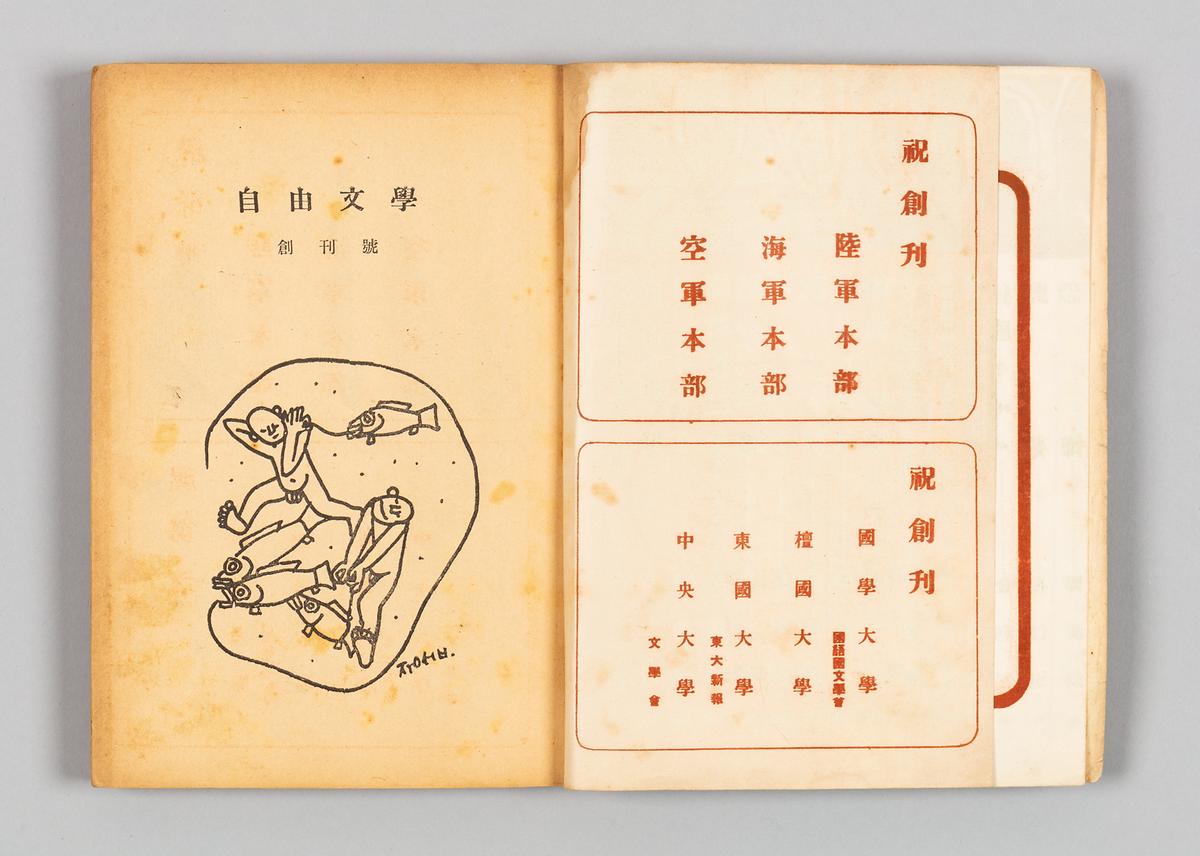 自由文學
創刊號
祝創刊
陸軍本部
海軍本部
空軍本部
祝創刊
國學大學
國語國文學會
檀國大學
東國大學
東大新報
中央大學
文學會